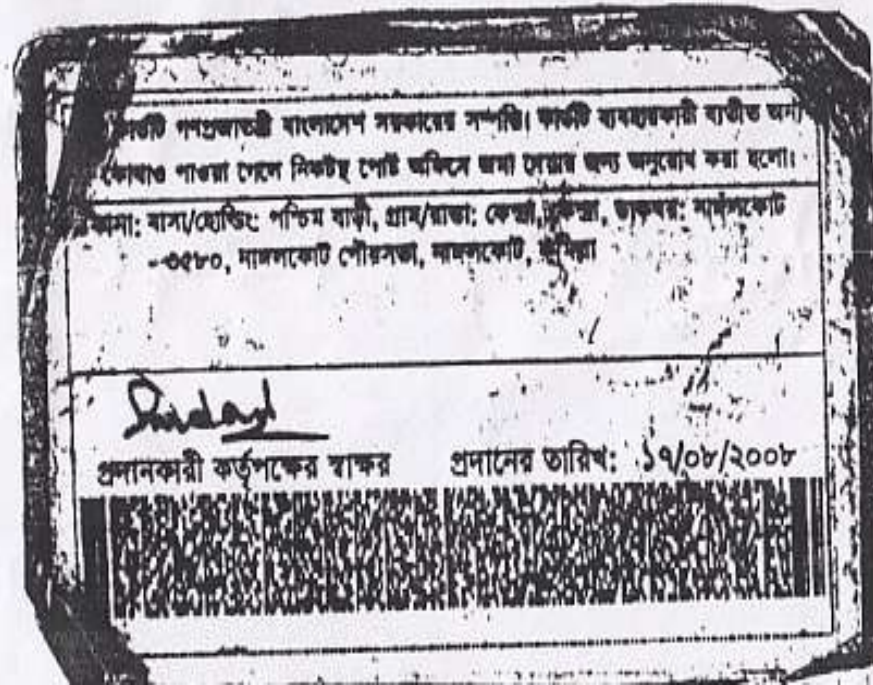 কার্ডটি গণপ্রজাতন্ত্রী বাংলাদেশ সরকারের সম্পত্তি। কার্ডটি ব্যবহারকারী ব্যতীত অন্য
কোথাও পাওয়া গেলে নিকটস্থ পোষ্ট অফিসে জমা দেয়ার জন্য অনুরোধ করা হলো।
বাসা/হোল্ডিং: পশ্চিম বাড়ী, গ্রাম/রাস্তা: ডাকঘর: নাঙ্গলকোট
-৩৫৮০, নাঙ্গলকোট পৌরসভা, নাঙ্গলকোট, কুমিল্লা
প্রদানকারী কর্তৃপক্ষের স্বাক্ষর প্রদানের তারিখ: ১৭/০৮/২০০৮